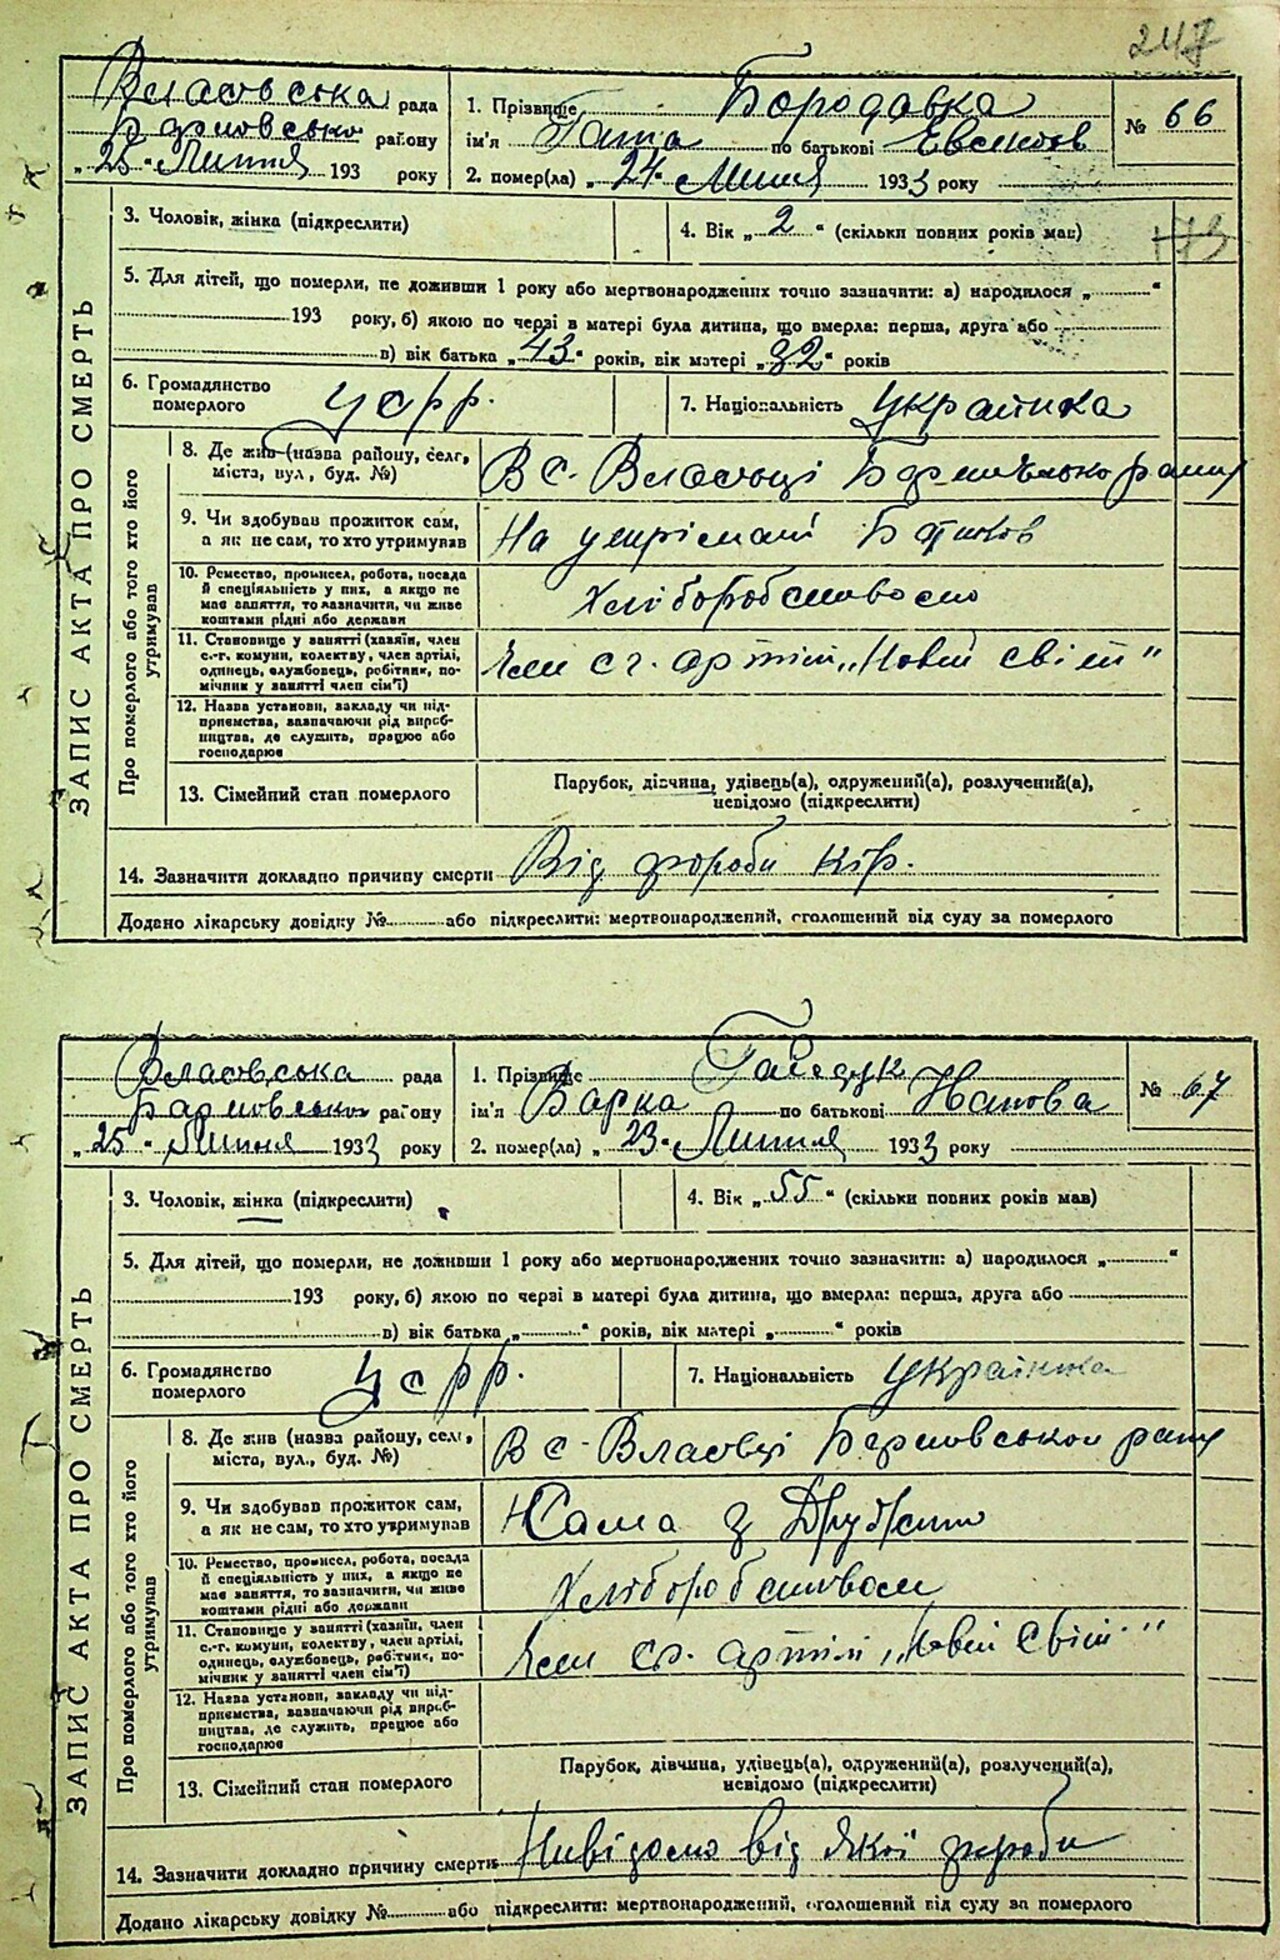 247
Власовська рада
району
"25" Липня 193 року
1. Прізвище Бородавка
ім'я по батькові
2. помер(ла) "24" Липня 1933 року
№ 66
3. Чоловік, жінка (підкреслити)
4. Вік "2" (скільки повних років мав)
173
5. Для дітей, що померли, не доживши 1 року або мертвонароджених точно зазначити: а) народилося " "
193 року, б) якою по черзі в матері була дитина, що вмерла: перша, друга або
в) вік батька "43" років, вік матері "32" років
6. Громадянство померлого
УСРР.
7. Національність Українка
ЗАПИС АКТА ПРО СМЕРТЬ
Про померлого або того хто його утримував
8. Де жив (назва району, села, міста, вул., буд. №)
В с. Власовці
9. Чи здобував прожиток сам, а як не сам, то хто утримував
На утрімані Батьков
10. Ремество, промисел, робота, посада й спеціяльність у них, а якщо не має заняття, то зазначити, чи живе коштами рідні або держави
Хліборобством
11. Становище у занятті (хазяїн, член с.-г. комуни, колективу, член артілі, одинець, службовець, робітник, помічник у занятті член сім'ї)
Член с г. артілі "Новий світ"
12. Назва установи, закладу чи підприємства, зазначаючи рід виробництва, де служить, працює або господарює
13. Сімейний стан померлого
Парубок, дівчина, удівець(а), одружений(а), розлучений(а),
невідомо (підкреслити)
14. Зазначити докладно причину смерти Від хороби кір.
Додано лікарську довідку № або підкреслити: мертвонароджений, оголошений від суду за померлого
Власовська рада
району
"25" Липня 1933 року
1. Прізвище Гайдук
ім'я Варка по батькові Иванова
2. помер(ла) "23" Липня 1933 року
№ 67
3. Чоловік, жінка (підкреслити)
4. Вік "55" (скільки повних років мав)
5. Для дітей, що померли, не доживши 1 року або мертвонароджених точно зазначити: а) народилося " "
193 року, б) якою по черзі в матері була дитина, що вмерла: перша, друга або
в) вік батька " " років, вік матері " " років
6. Громадянство померлого
УСРР.
7. Національність Українка
ЗАПИС АКТА ПРО СМЕРТЬ
Про померлого або того хто його утримував
8. Де жив (назва району, села, міста, вул., буд. №)
В с. Власовці
9. Чи здобував прожиток сам, а як не сам, то хто утримував
Сама з
10. Ремество, промисел, робота, посада й спеціяльність у них, а якщо не має заняття, то зазначити, чи живе коштами рідні або держави
Хліборобством
11. Становище у занятті (хазяїн, член с.-г. комуни, колективу, член артілі, одинець, службовець, робітник, помічник у занятті член сім'ї)
Член с.г. артілі "Новий Світ"
12. Назва установи, закладу чи підприємства, зазначаючи рід виробництва, де служить, працює або господарює
13. Сімейний стан померлого
Парубок, дівчина, удівець(а), одружений(а), розлучений(а),
невідомо (підкреслити)
14. Зазначити докладно причину смерти Нивідомо від якої хороби
Додано лікарську довідку № або підкреслити: мертвонароджений, оголошений від суду за померлого